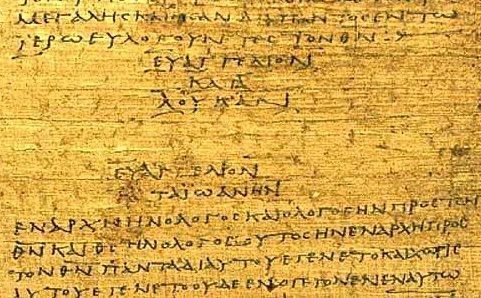 ΜΕΓΑΛΗϹ ΚΑΙ ΗϹΑΝ ΔΙΑ ΠΑΝΤΟϹ ΕΝ ΤΩ
ΙΕΡΩ ΕΥΛΟΓΟΥΝΤΕϹ ΤΟΝ ΘΝ
ΕΥΑΓΓΕΛΙΟΝ
ΚΑΤΑ
ΛΟΥΚΑΝ
ΕΥΑΓΓΕΛΙΟΝ
ΚΑΤΑ ΙΩΑΝΗΝ
ΕΝ ΑΡΧΗ ΗΝ Ο ΛΟΓΟϹ ΚΑΙ Ο ΛΟΓΟϹ ΗΝ ΠΡΟϹ ΤΟΝ
ΘΝ ΚΑΙ ΘϹ ΗΝ Ο ΛΟΓΟϹ ΟΥΤΟϹ ΗΝ ΕΝ ΑΡΧΗ ΠΡΟϹ
ΤΟΝ ΘΝ ΠΑΝΤΑ ΔΙ ΑΥΤΟΥ ΕΓΕΝΕΤΟ ΚΑΙ ΧΩΡΙϹ
ΑΥΤΟΥ ΕΓΕΝΕΤΟ ΟΥΔΕ ΕΝ Ο ΓΕΓΟΝΕΝ ΕΝ ΑΥΤΩ